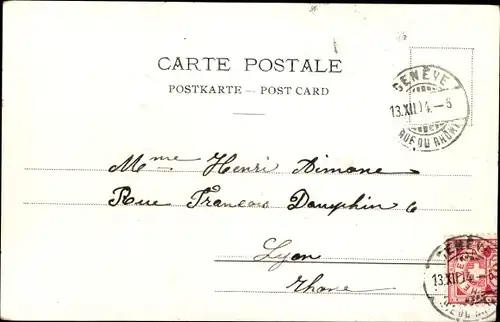 CARTE POSTALE
POSTKARTE — POST CARD
GENÈVE
13.XII.04.—5
RUE DU RHÔNE
Mme Henri Aimone
Rue Francois Dauphin 6
Lyon
Rhone
GENÈVE
13.XII.04.—